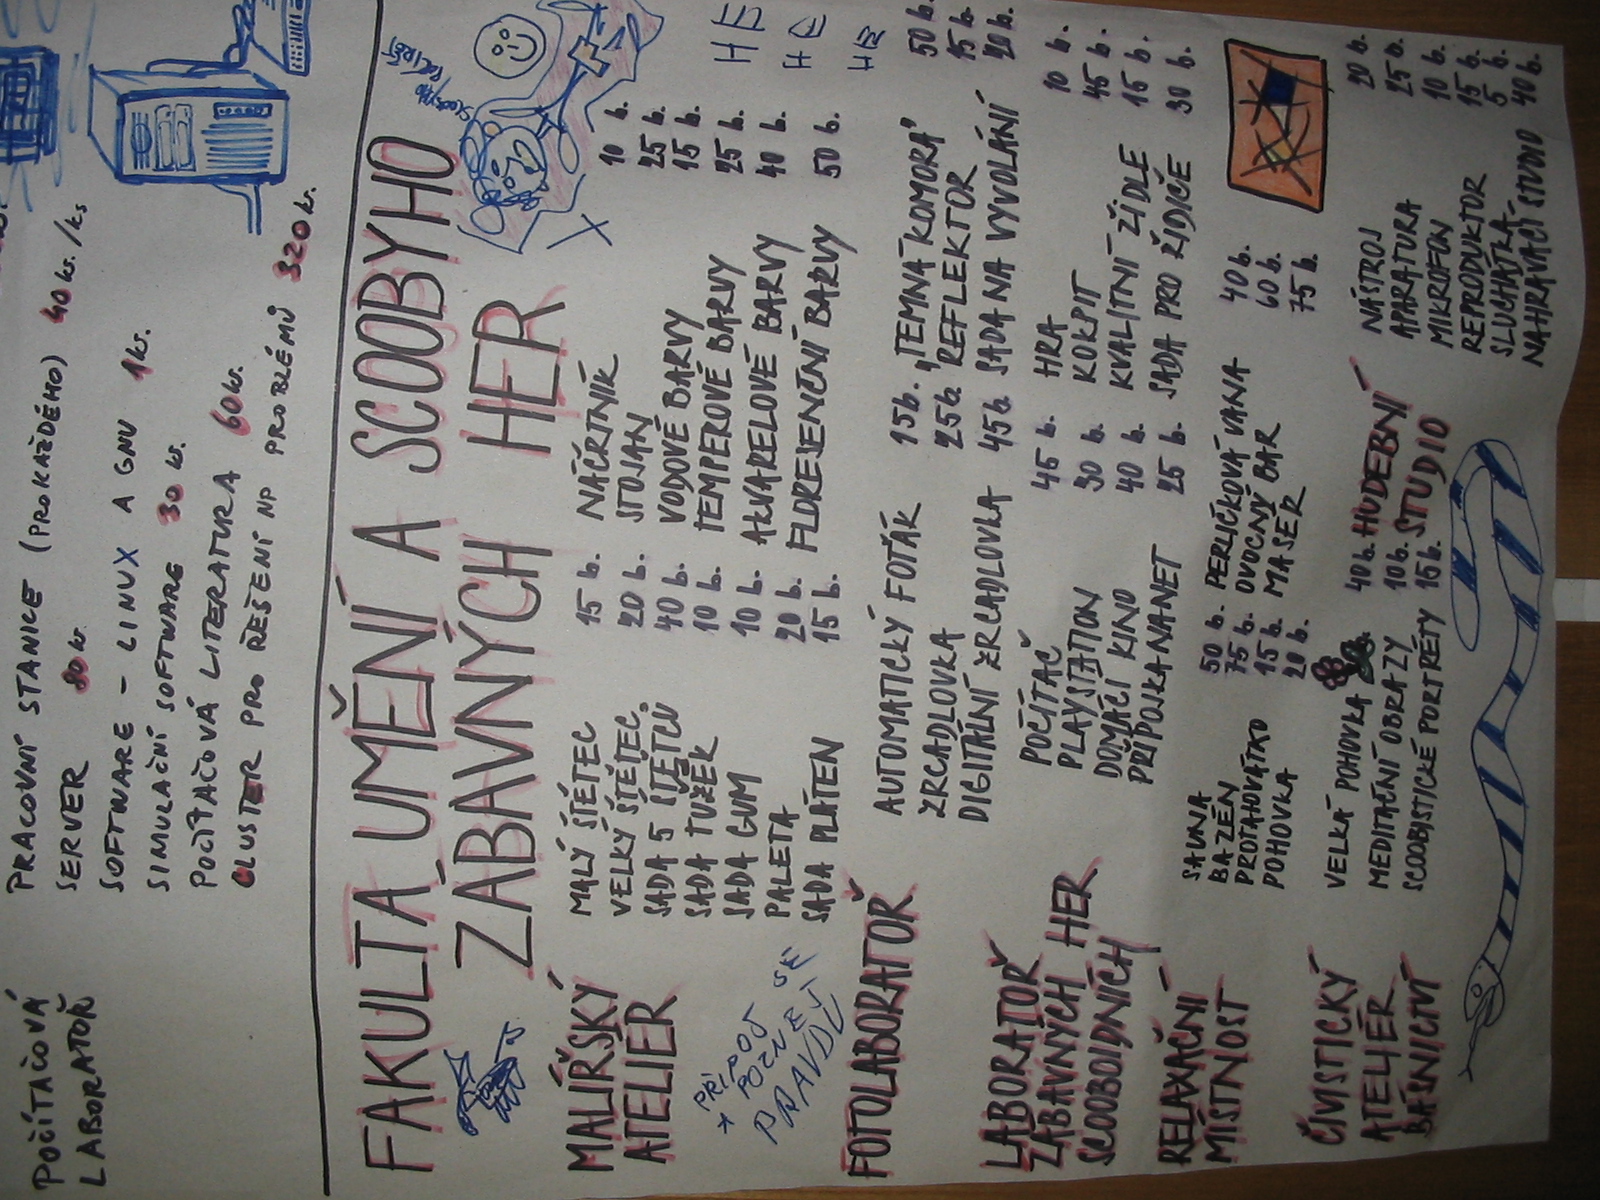 POČÍTAČOVÁ
LABORATOŘ
PRACOVNÍ STANICE (PRO KAŽDÉHO) 40 ks. /ks
SERVER 80 ks.
SOFTWARE - LINUX A GNU 1 ks.
SIMULAČNÍ SOFTWARE 30 ks.
POČÍTAČOVÁ LITERATURA 60 ks.
CLUSTER PRO ŘEŠENÍ NP PROBLÉMŮ 320 ks.
FAKULTA UMĚNÍ A SCOOBYHO
ZÁBAVNÝCH HER
SCOOBYHO
HE
HE
HE
MALÍŘSKÝ
ATELIÉR
MALÝ ŠTĚTEC 15 b.
VELKÝ ŠTĚTEC 20 b.
SADA 5 ŠTĚTCŮ 40 b.
SADA TUŽEK 10 b.
SADA GUM 10 b.
PALETA 20 b.
SADA PLÁTEN 15 b.
NÁČRTNÍK 10 b.
STOJAN 25 b.
VODOVÉ BARVY 15 b.
TEMPEROVÉ BARVY 25 b.
AKVARELOVÉ BARVY 40 b.
FLORESENČNÍ BARVY 50 b.
* PŘIPOJ SE
POZNEJ
PRAVDU
FOTOLABORATOŘ
AUTOMATICKÝ FOŤÁK 15 b.
ZRCADLOVKA 25 b.
DIGITÁLNÍ ZRCADLOVKA 45 b.
"TEMNÁ KOMORA" 50 b.
REFLEKTOR 15 b.
SADA NA VYVOLÁNÍ 20 b.
LABORATOŘ
ZÁBAVNÝCH HER
SCOOBOIDNÍCH
POČÍTAČ 45 b.
PLAYSTATION 30 b.
DOMÁCÍ KINO 40 b.
PŘÍPOJKA NA NET 25 b.
HRA 10 b.
KOKPIT 45 b.
KVALITNÍ ŽIDLE 15 b.
SADA PRO ŘIDIČE 30 b.
RELAXAČNÍ
MÍSTNOST
SAUNA 50 b.
BAZÉN 75 b.
PROTAHOVÁTKO 15 b.
POHOVKA 20 b.
PERLIČKOVÁ VANA 40 b.
OVOCNÝ BAR 60 b.
MASÉR 75 b.
ČIVISTICKÝ
ATELIÉR
BÁSNICTVÍ
VELKÁ POHOVKA 40 b.
MEDITAČNÍ OBRAZY 10 b.
SCOOBISTICKÉ PORTRÉTY 15 b.
HUDEBNÍ
STUDIO
NÁSTROJ 20 b.
APARATURA 25 b.
MIKROFON 10 b.
REPRODUKTOR 15 b.
SLUCHÁTKA 5 b.
NAHRÁVACÍ STUDIO 40 b.